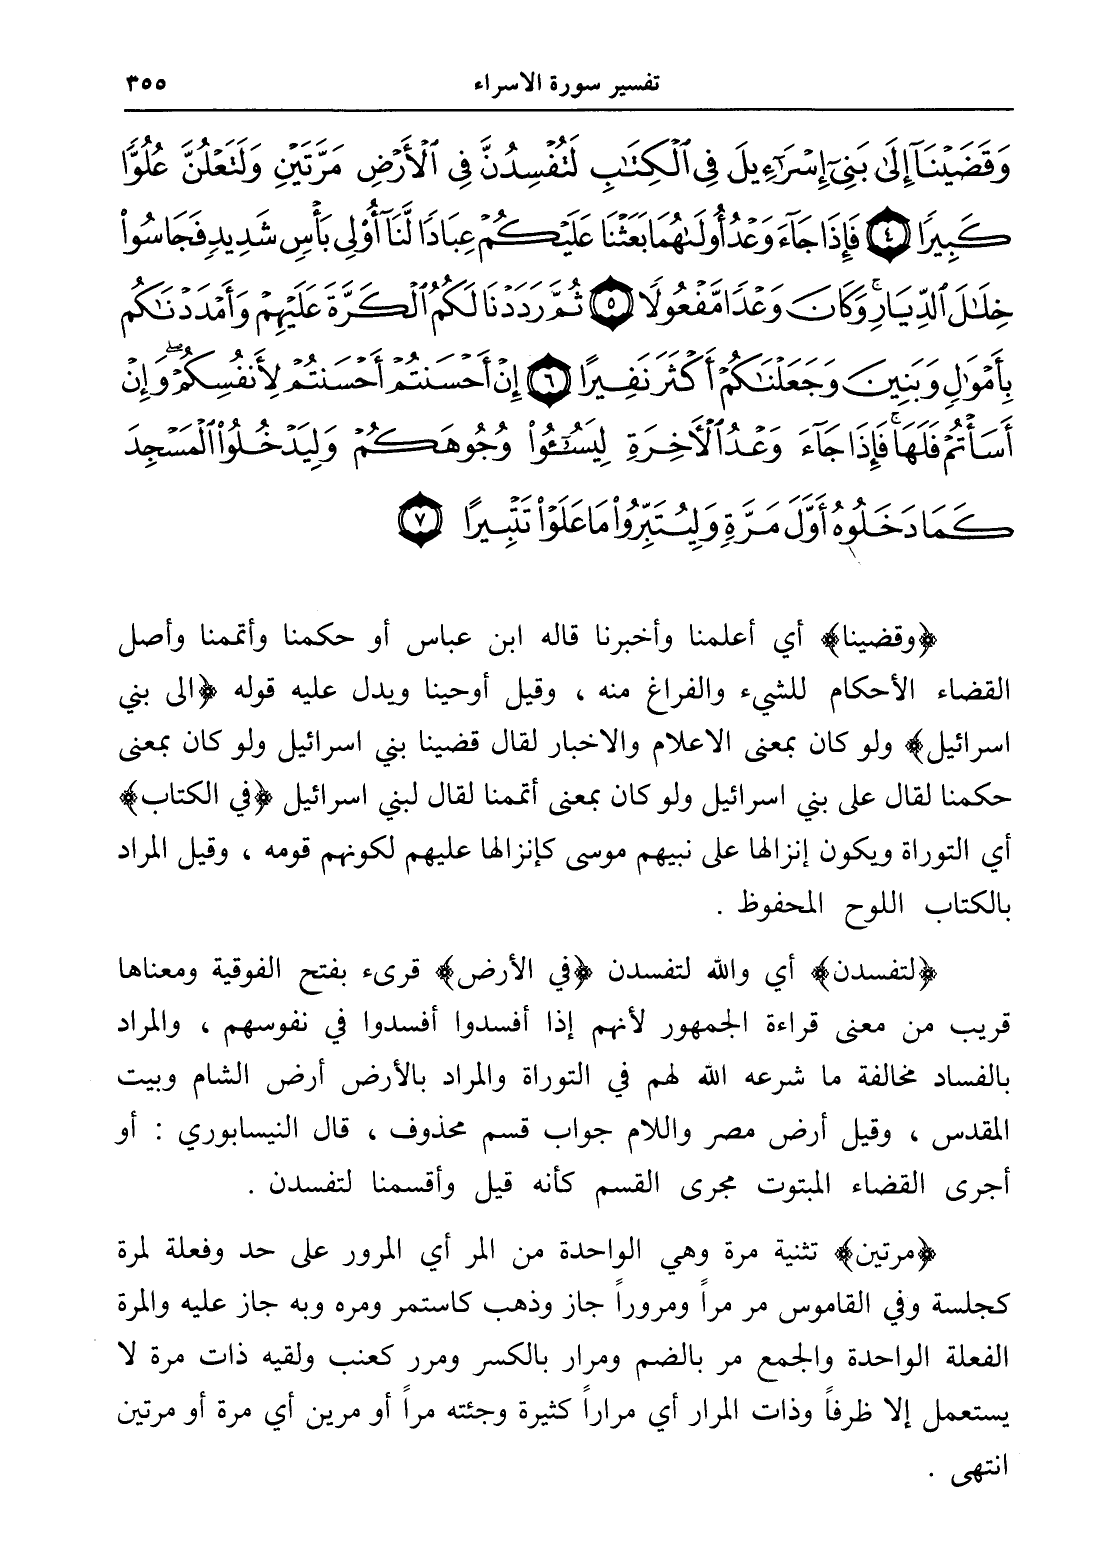 تفسير سورة الاسراء ٣٥٥
وَقَضَيْنَآ إِلَىٰ بَنِىٓ إِسْرَٰٓءِيلَ فِى ٱلْكِتَٰبِ لَتُفْسِدُنَّ فِى ٱلْأَرْضِ مَرَّتَيْنِ وَلَتَعْلُنَّ عُلُوًّا
كَبِيرًا ٤ فَإِذَا جَآءَ وَعْدُ أُولَىٰهُمَا بَعَثْنَا عَلَيْكُمْ عِبَادًا لَّنَآ أُو۟لِى بَأْسٍ شَدِيدٍ فَجَاسُوا۟
خِلَٰلَ ٱلدِّيَارِ ۚ وَكَانَ وَعْدًا مَّفْعُولًا ٥ ثُمَّ رَدَدْنَا لَكُمُ ٱلْكَرَّةَ عَلَيْهِمْ وَأَمْدَدْنَٰكُم
بِأَمْوَٰلٍ وَبَنِينَ وَجَعَلْنَٰكُمْ أَكْثَرَ نَفِيرًا ٦ إِنْ أَحْسَنتُمْ أَحْسَنتُمْ لِأَنفُسِكُمْ ۖ وَإِنْ
أَسَأْتُمْ فَلَهَا ۚ فَإِذَا جَآءَ وَعْدُ ٱلْأَخِرَةِ لِيَسُـۥٓـُٔوا۟ وُجُوهَكُمْ وَلِيَدْخُلُوا۟ ٱلْمَسْجِدَ
كَمَا دَخَلُوهُ أَوَّلَ مَرَّةٍ وَلِيُتَبِّرُوا۟ مَا عَلَوْا۟ تَتْبِيرًا ٧
﴿وقضينا﴾ أي أعلمنا وأخبرنا قاله ابن عباس أو حكمنا وأتممنا وأصل
القضاء الأحكام للشيء والفراغ منه ، وقيل أوحينا ويدل عليه قوله ﴿الى بني
اسرائيل﴾ ولو كان بمعنى الاعلام والاخبار لقال قضينا بني اسرائيل ولو كان بمعنى
حكمنا لقال على بني اسرائيل ولو كان بمعنى أتممنا لقال لبني اسرائيل ﴿في الكتاب﴾
أي التوراة ويكون إنزالها على نبيهم موسى كإنزالها عليهم لكونهم قومه ، وقيل المراد
بالكتاب اللوح المحفوظ .
﴿لتفسدن﴾ أي والله لتفسدن ﴿في الأرض﴾ قرىء بفتح الفوقية ومعناها
قريب من معنى قراءة الجمهور لأنهم إذا أفسدوا أفسدوا في نفوسهم ، والمراد
بالفساد مخالفة ما شرعه الله لهم في التوراة والمراد بالأرض أرض الشام وبيت
المقدس ، وقيل أرض مصر واللام جواب قسم محذوف ، قال النيسابوري : أو
أجرى القضاء المبتوت مجرى القسم كأنه قيل وأقسمنا لتفسدن .
﴿مرتين﴾ تثنية مرة وهي الواحدة من المر أي المرور على حد وفعلة لمرة
كجلسة وفي القاموس مر مراً ومروراً جاز وذهب كاستمر ومره وبه جاز عليه والمرة
الفعلة الواحدة والجمع مر بالضم ومرار بالكسر ومرر كعنب ولقيه ذات مرة لا
يستعمل إلا ظرفاً وذات المرار أي مراراً كثيرة وجئته مراً أو مرين أي مرة أو مرتين
انتهى .